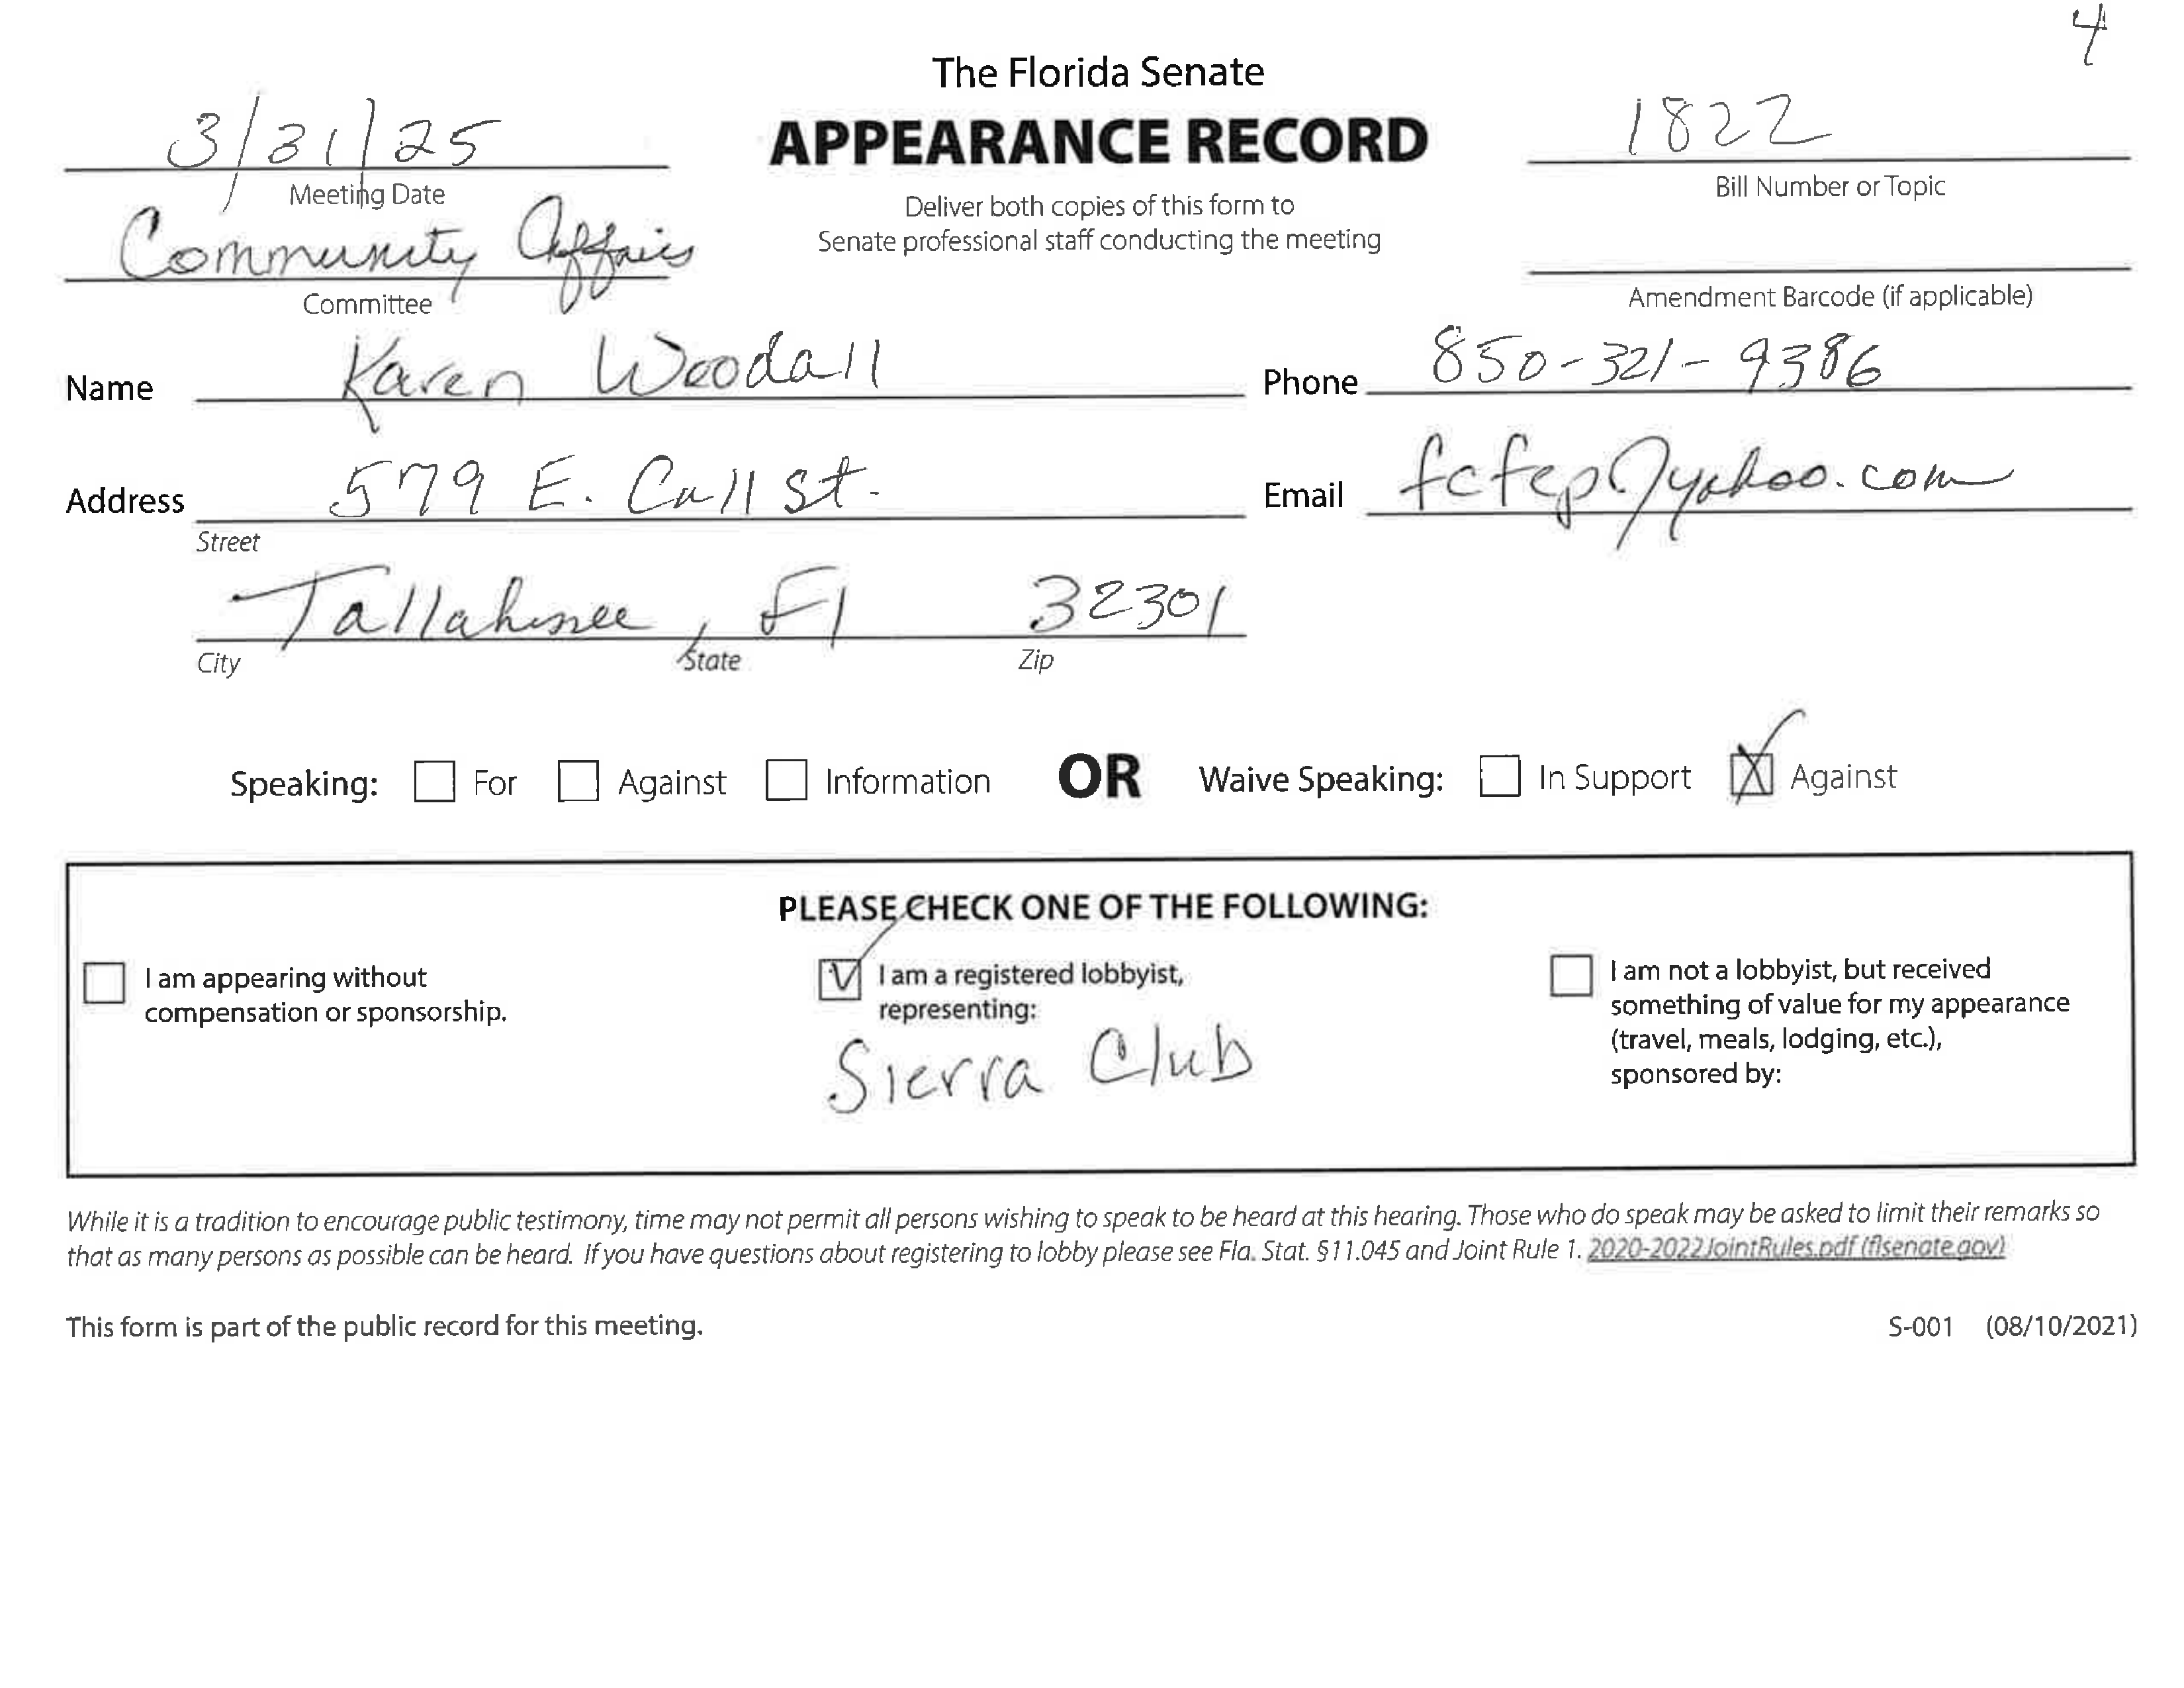 4
The Florida Senate
3/31/25
APPEARANCE RECORD
1822
Meeting Date
Bill Number or Topic
Deliver both copies of this form to
Senate professional staff conducting the meeting
Community Affairs
Committee
Amendment Barcode (if applicable)
Name Karen Woodall
Phone 850-321-9386
Address 579 E. Call St.
Email fcfep@yahoo.com
Street
Tallahassee, Fl 32301
City State Zip
Speaking: For Against Information OR Waive Speaking: In Support X Against
PLEASE CHECK ONE OF THE FOLLOWING:
I am appearing without
compensation or sponsorship.
I am a registered lobbyist,
representing:
Sierra Club
I am not a lobbyist, but received
something of value for my appearance
(travel, meals, lodging, etc.),
sponsored by:
While it is a tradition to encourage public testimony, time may not permit all persons wishing to speak to be heard at this hearing. Those who do speak may be asked to limit their remarks so
that as many persons as possible can be heard. If you have questions about registering to lobby please see Fla. Stat. §11.045 and Joint Rule 1. 2020-2022JointRules.pdf (flsenate.gov)
This form is part of the public record for this meeting.
S-001 (08/10/2021)